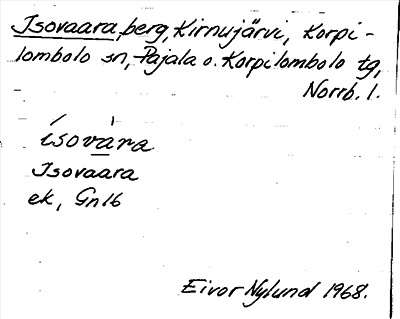 Isovaara, berg, Kirnujärvi, Korpi-
lombolo sn, Pajala o. Korpilombolo tg,
Norrb. l.
ísovàra
Isovaara
ek, Gn16
Eivor Nylund 1968.